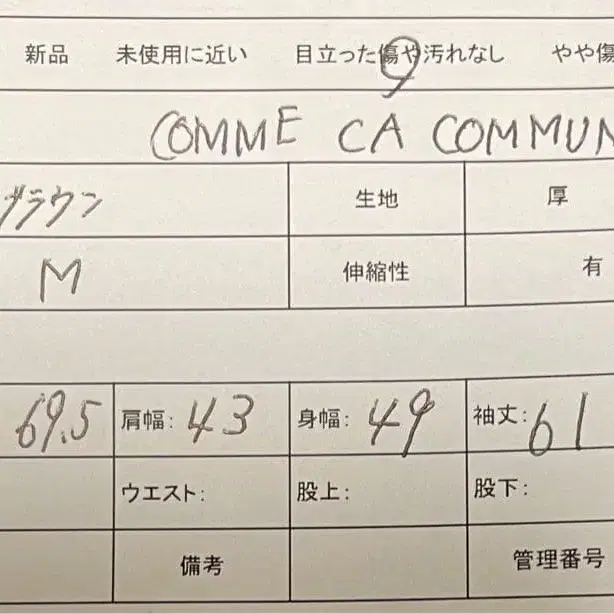 新品 未使用に近い 目立った傷や汚れなし やや傷
COMME CA COMMUN
ブラウン 生地 厚
M 伸縮性 有
69.5 肩幅: 43 身幅: 49 袖丈: 61
ウエスト: 股上: 股下:
備考 管理番号